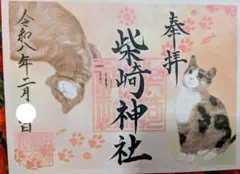 奉拝
柴崎神社
令和八年二月 日